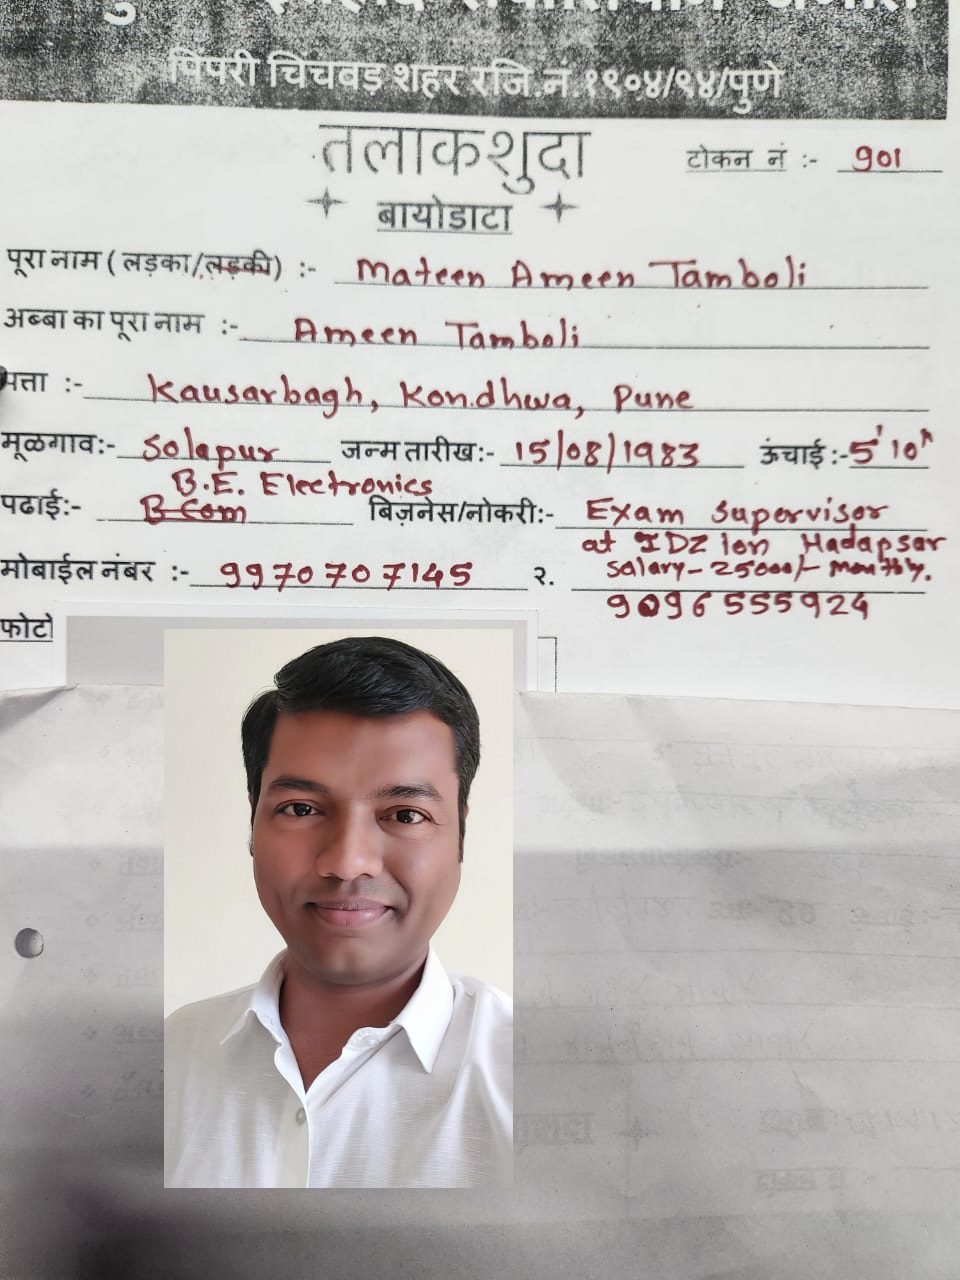 पिंपरी चिंचवड शहर रजि.नं.१९०४/९४/पुणे
तलाकशुदा
टोकन नं :- 901
बायोडाटा
पूरा नाम ( लड़का/लड़की) :- Mateen Ameen Tamboli
अब्बा का पूरा नाम :- Ameen Tamboli
पत्ता :- Kausarbagh, Kondhwa, Pune
मूळगाव:- Solapur जन्म तारीख:- 15/08/1983 ऊंचाई :- 5' 10"
B.E. Electronics
पढाई:- B com बिज़नेस/नोकरी:- Exam Supervisor
at IDZ Ion Hadapsar
salary - 25000/- monthly.
मोबाईल नंबर :- 9970707145 २. 9096555924
फोटो